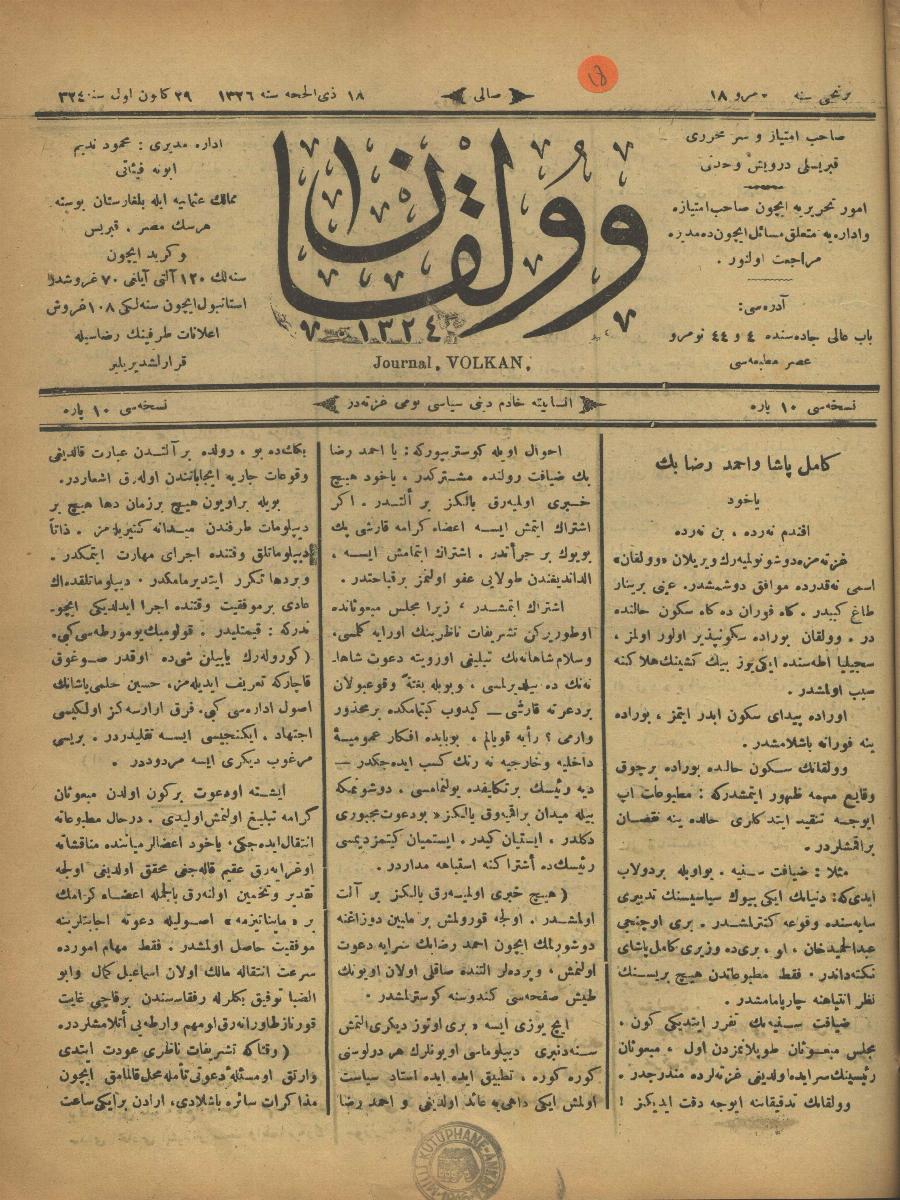 برنجی سنه - نومرو ١٨
صالی
١٨ ذی الحجه سنه ١٣٢٦
٢٩ كانون اول سنه ٣٢٤
18
صاحب امتیاز و سر محرری
قبریسلی درویش وحدتی
امور تحریریه ایچون صاحب امتیازه
واداره‌یه متعلق مسائل ایچون‌ده مدیره
مراجعت اولنور .
آدره‌سی:
باب عالی جاده‌سنده ٤ و ٤٤ نومرو
عصر مطبعه‌سی
وولقان
١٣٢٤
Journal, VOLKAN,
اداره مدیری : محمود ندیم
ابونه فیئاتی
ممالك عثمانیه ایله بلغارستان بوسنه
هرسك مصر ، قبریس
وكرید ایچون
سنه‌لك ١٢٠ آلتی آیلغی ٧٠ غروشدر
استانبول ایچون سنه‌لكی ١٠٨ غروش
اعلانات طرفینك رضاسیله
قرارلشدیریلیر
نسخه‌سی ١٠ پاره
انسانیته خادم دینی سیاسی یومی غزته‌در
نسخه‌سی ١٠ پاره
كامل پاشا واحمد رضا بك
یاخود
افندم نه‌رده ، بن نه‌رده
غزته‌مزه دوشونولمیه‌رك ویریلان «وولقان»
اسمی نه‌قدرده موافق دوشمشدر. عینی برینار
طاغ كبیدر . كاه فوران ده كاه سكون حالنده
در . وولقان بوراده سكونپذیر اولور اولمز ،
سجیلیا اطه‌سنده ایكی یوز بیك كشینك هلاكنه
سبب اولمشدر .
اوراده پیدای سكون ایدر ایتمز ، بوراده
ینه فورانه باشلامشدر .
وولقانك سكون حالنده بوراده برچوق
وقایع مهمه ظهور ایتمشدركه : مطبوعات اپ
ایوجه تنقید ایتدكلری حالده ینه نقصان
براقمشلردر .
مثلا : ضیافت سنیه . بواویله بردولاب
ایدی‌كه: دنیانك ایكی بیوك سیاسیسنك تدبیری
سایه‌سنده وقوعه كتیرلمشدر . بری اوچنجی
عبدالحمید خان ، او ، بری‌ده وزیری كامل پاشای
نكته‌داندر . فقط مطبوعاتدن هیچ بریسنك
نظر انتباهنه چارپامامشدر .
ضیافت سنیه‌نك تقرر ایتدیكی كون ،
مجلس مبعوثان طوپلانمزدن اول ، مبعوثان
رئیسینك سرایده اولدیغی غزته‌لرده مندرجدر .
وولقانك تدقیقاتنه ایوجه دقت ایدیكز !
احوال اویله كوستریوركه : یا احمد رضا
بك ضیافت رولنده مشتركدر ، یاخود هیچ
خبری اولمیه‌رق یالكز بر آلتدر . اكر
اشتراك ایتمش ایسه اعضاء كرامه قارشی پك
بویوك بر جرأتدر . اشتراك ایتمامش ایسه ،
الداندیغندن طولایی عفو اولنمز برقباحتدر .
اشتراك ایتمشدر ، زیرا مجلس مبعوثانده
اوطوریركن تشریفات ناظرینك اورایه كلمسی،
وسلام شاهانه‌نك تبلیغی اوزرینه دعوت شاها.
نه‌نك ده بیلدیرلمسی ، وبویله بغتةً وقوعبولان
بردعوته قارشی — كیدوب كیتمامكده برمحذور
وارمی ؟ رأیه قویالم ، بوبابده افكار عمومیۀ
داخلیه وخارجیه نه رنك كسب ایده‌جكدر —
دیه رئیسك برتكلیفده بولنمامسی ، دوشونمكه
بیله میدان براقمیوب یالكز « بودعوت مجبوری
دكلدر ، ایستیان كیدر ، ایستمیان كیتمز دیمسی
رئیسك‌ده اشتراكنه استباهه مداردر .
( هیچ خبری اولمیه‌رق یالكز بر آلت
اولمشدر . اولجه قورولمش بر مابین دوزاغنه
دوشورلمك ایچون احمد رضابك سرایه دعوت
اولنمش ، وپرده‌لر آلتنده صاقلی اولان اویونك
طیش صفحه‌سی كندوسنه كوسترلمشدر .
ایچ یوزی ایسه « بری اوتوز دیكری التمش
سنه‌دنبری دیپلوماسی اویونلرك هر درلوسنی
كوره كوره ، تطبیق ایده ایده استاد سیاست
اولمش ایكی داهی‌یه عائد اولدیغنی و احمد رضا
بكك‌ده بو ، رولده بر آلتدن عبارت قالدیغی
وقوعات جاریه ایجاباتندن اوله‌رق اشعاردر .
بویله براویون هیچ برزمان دها هیچ بر
دیپلومات طرفندن میدانه كتیریله‌مز . ذاتاً
دیپلوماتلق وقتنده اجرای مهارت ایتمكدر .
وبردها تكرر ایتدیرمامكدر . دیپلوماتلقده‌ك
عادی برموفقیت وقتنده اجرا ایدلدیكی ایچو-
ندركه : قیمتلیدر . قولومبك یومورطه‌سی كبی.
( كوروله‌رك یاپیلان شی‌ده اوقدر صوغوق
قاچاركه تعریف ایدیله‌مز، حسین حلمی پاشانك
اصول اداره‌سی كبی. فرق آراره‌سه‌كز اولكیسی
اجتهاد ، ایكنجیسی ایسه تقلیددر . بریسی
مرغوب دیكری ایسه مردوددر .
ایشته اودعوت بركون اولدن مبعوثان
كرامه تبلیغ اولنمش اولیدی . درحال مطبوعاته
انتقال ایده‌جكی، یاخود اعضالر میاننده مناقشاته
اوغرایه‌رق عقیم قاله‌جغی محقق اولدیغی اولجه
تقدیر وتخمین اولنه‌رق بالجمله اعضاء كرامك
بر « مایناتیزمه » اصولیله دعوته اجابتلرینه
موفقیت حاصل اولمشدر . فقط مهام امورده
سرعت انتقاله مالك اولان اسماعیل كمال وابو
الضیا توفیق بكلرله رفقاسندن برقاچی غایت
قورنازطاورانه‌رق اومهم وارطه‌یی آتلامشلردر.
( وقتاكه تشریفات ناظری عودت ایتدی
وارتق اومسئلۀ دعوتی تأمله محل قالمامق ایچون
مذاكرات سائره باشلادی، ارادن برایكی ساعت
MİLLÎ KÜTÜPHANE-ANKARA